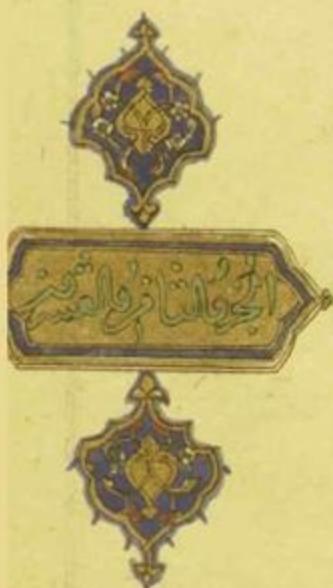 الجزو الثامن والعشرون